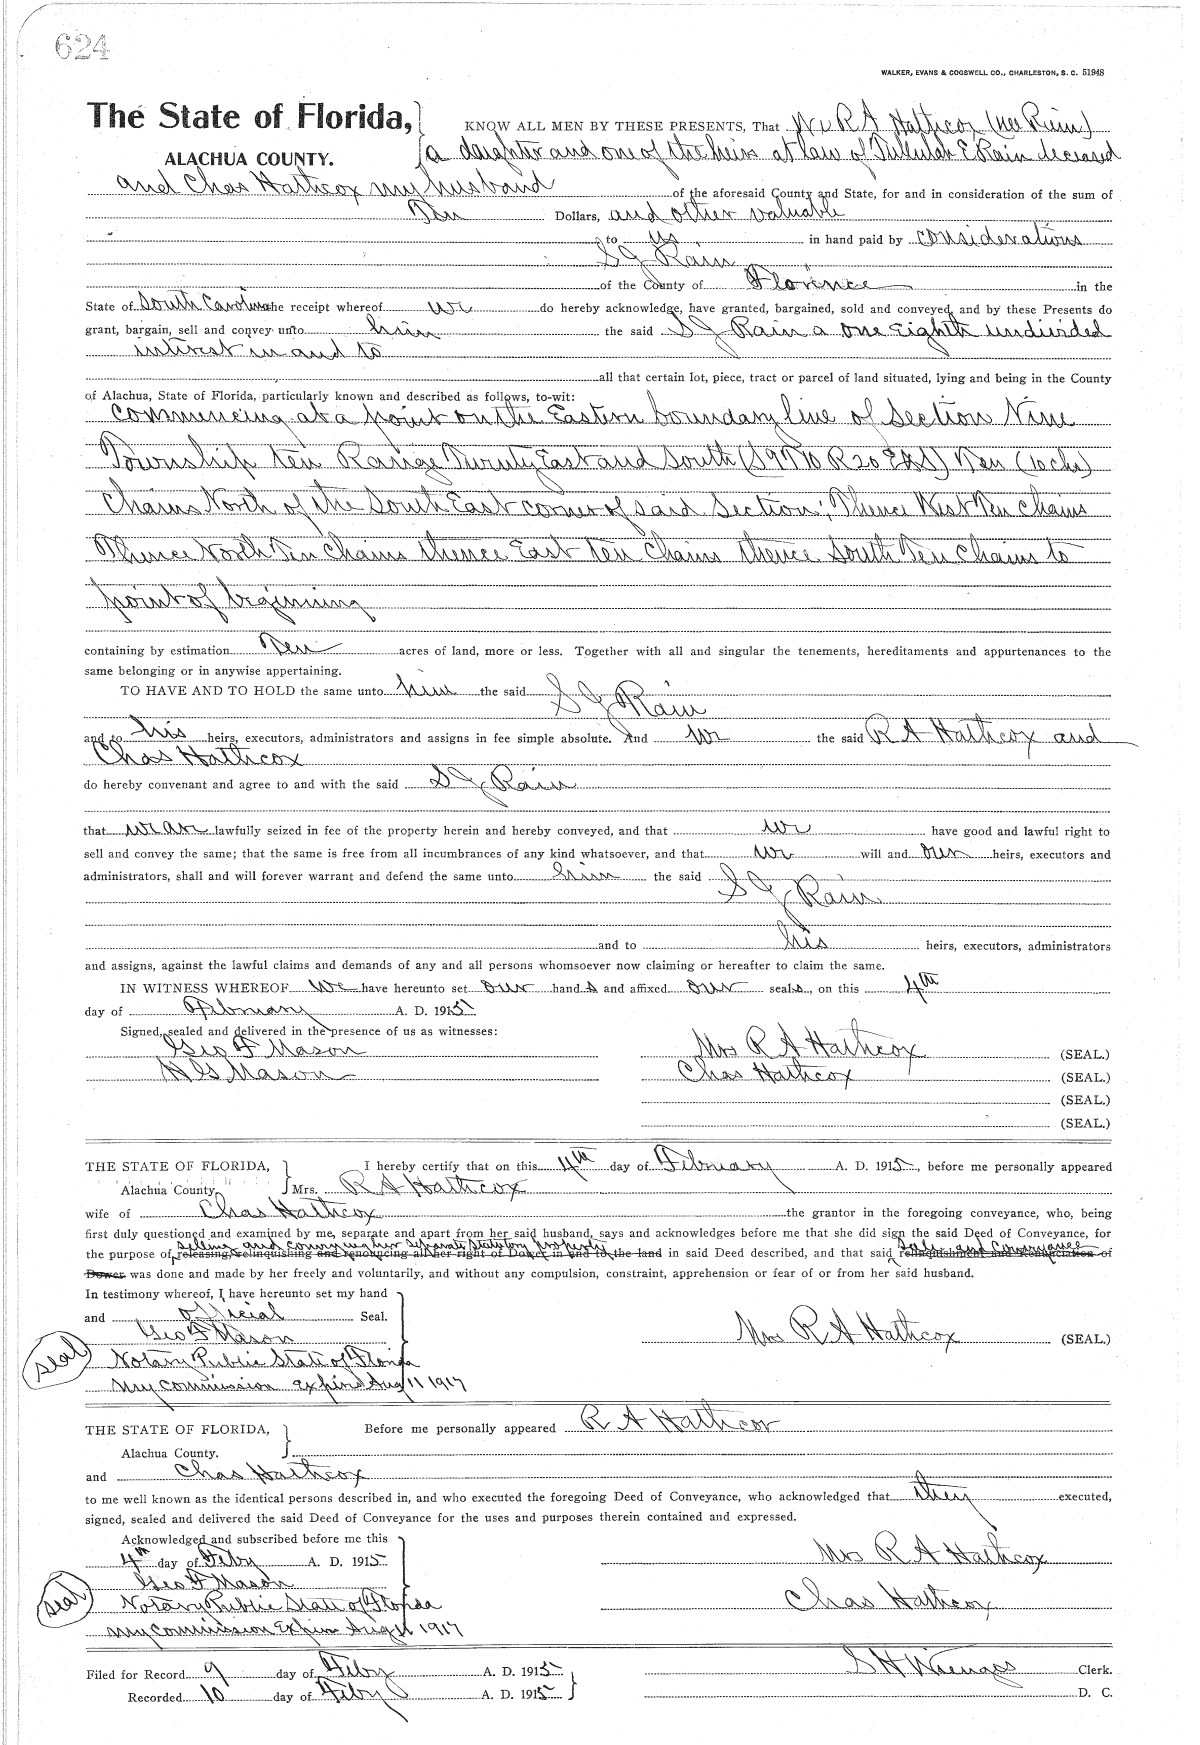 624
WALKER, EVANS & COGSWELL CO., CHARLESTON, S. C. 51948
The State of Florida, KNOW ALL MEN BY THESE PRESENTS, That We R A Hathcox (nee Rain)
ALACHUA COUNTY. a daughter and one of the heirs at law of E Rain deceased
and Chas Hathcox my husband of the aforesaid County and State, for and in consideration of the sum of
Ten Dollars, and other valuable
to us in hand paid by considerations
S J Rain
of the County of Florence in the
State of South Carolina the receipt whereof we do hereby acknowledge, have granted, bargained, sold and conveyed, and by these Presents do
grant, bargain, sell and convey unto him the said S J Rain a one Eighth undivided
interest in and to
all that certain lot, piece, tract or parcel of land situated, lying and being in the County
of Alachua, State of Florida, particularly known and described as follows, to-wit:
Commencing at a point on the Eastern boundary line of Section Nine
Township Ten Range Twenty East and South (S9 T10 R20 E&S) Ten (10 chs)
Chains North of the South East corner of said Section; Thence West Ten Chains
Thence North Ten Chains thence East Ten Chains thence South Ten Chains to
point of beginning
containing by estimation Ten acres of land, more or less. Together with all and singular the tenements, hereditaments and appurtenances to the
same belonging or in anywise appertaining.
TO HAVE AND TO HOLD the same unto him the said S J Rain
and to his heirs, executors, administrators and assigns in fee simple absolute. And we the said R A Hathcox and
Chas Hathcox
do hereby convenant and agree to and with the said S J Rain
that we are lawfully seized in fee of the property herein and hereby conveyed, and that we have good and lawful right to
sell and convey the same; that the same is free from all incumbrances of any kind whatsoever, and that we will and our heirs, executors and
administrators, shall and will forever warrant and defend the same unto him the said S J Rain
and to his heirs, executors, administrators
and assigns, against the lawful claims and demands of any and all persons whomsoever now claiming or hereafter to claim the same.
IN WITNESS WHEREOF We have hereunto set our hands and affixed our seals, on this 4th
day of February A. D. 1915
Signed, sealed and delivered in the presence of us as witnesses:
Geo F Mason Mrs R A Hathcox (SEAL.)
H G Mason Chas Hathcox (SEAL.)
(SEAL.)
(SEAL.)
THE STATE OF FLORIDA, I hereby certify that on this 4th day of February A. D. 1915, before me personally appeared
Alachua County. Mrs. R A Hathcox
wife of Chas Hathcox the grantor in the foregoing conveyance, who, being
first duly questioned and examined by me, separate and apart from her said husband, says and acknowledges before me that she did sign the said Deed of Conveyance, for
selling and conveying her separate statutory property Sale and Conveyance
the purpose of releasing, relinquishing and renouncing all her right of Dower in and to the land in said Deed described, and that said relinquishment and renunciation of
Dower was done and made by her freely and voluntarily, and without any compulsion, constraint, apprehension or fear of or from her said husband.
In testimony whereof, I have hereunto set my hand
and official Seal.
Geo F Mason Mrs R A Hathcox (SEAL.)
seal Notary Public State of Florida
My commission expires Aug 11 1917
THE STATE OF FLORIDA, Before me personally appeared R A Hathcox
Alachua County.
and Chas Hathcox
to me well known as the identical persons described in, and who executed the foregoing Deed of Conveyance, who acknowledged that they executed,
signed, sealed and delivered the said Deed of Conveyance for the uses and purposes therein contained and expressed.
Acknowledged and subscribed before me this
4th day of Feby A. D. 1915 Mrs R A Hathcox
Geo F Mason
seal Notary Public State of Florida Chas Hathcox
My Commission Expires Aug 11 1917
Filed for Record 9 day of Feby A. D. 1915 S H Wienges Clerk.
Recorded 10 day of Feby A. D. 1915 D. C.